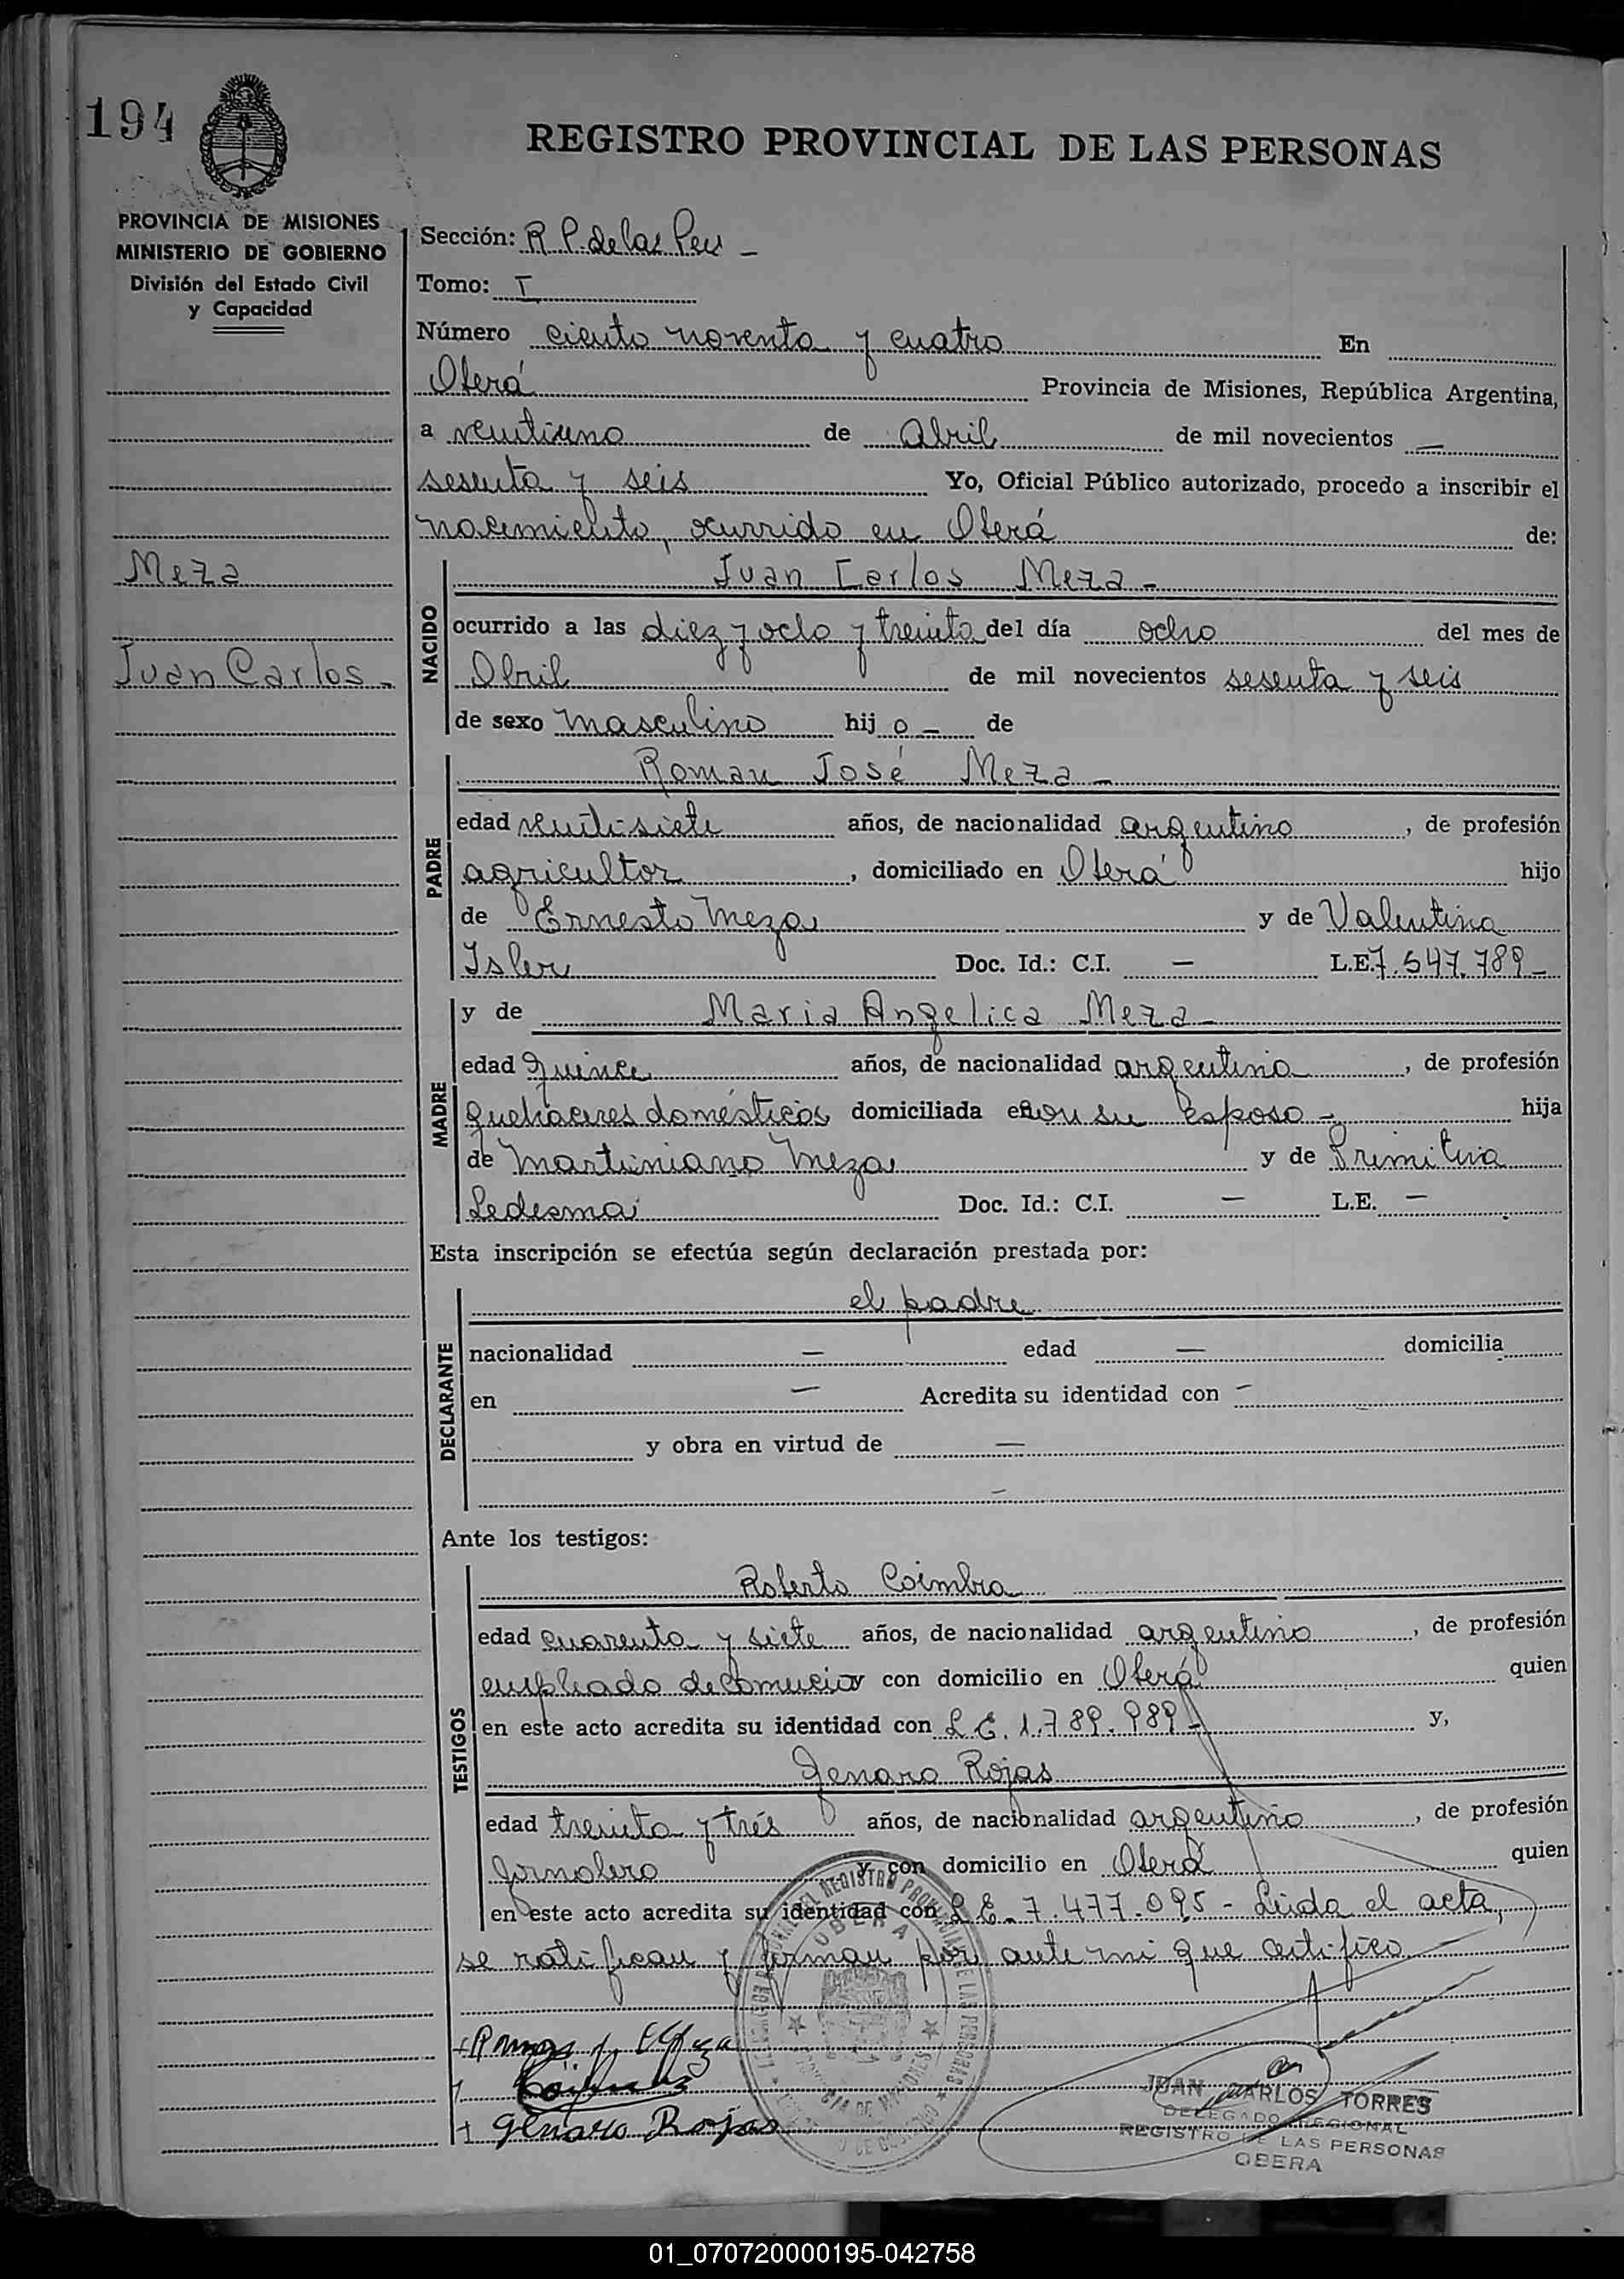 194
REGISTRO PROVINCIAL DE LAS PERSONAS
PROVINCIA DE MISIONES
MINISTERIO DE GOBIERNO
División del Estado Civil
y Capacidad
Sección: R P. de las Per -
Tomo: I
Número ciento noventa y cuatro En
Oberá Provincia de Misiones, República Argentina,
a veintiuno de Abril de mil novecientos —
sesenta y seis Yo, Oficial Público autorizado, procedo a inscribir el
nacimiento, ocurrido en Oberá de:
Meza
Juan Carlos Meza -
NACIDO
ocurrido a las diez y ocho y treinta del día ocho del mes de
Juan Carlos -
Abril de mil novecientos sesenta y seis
de sexo masculino hij o - de
Roman José Meza -
PADRE
edad veintisiete años, de nacionalidad argentino, de profesión
agricultor, domiciliado en Oberá hijo
de Ernesto Meza y de Valentina
Isler Doc. Id.: C.I. — L.E. 7.547.789 -
y de Maria Angelica Meza -
MADRE
edad quince años, de nacionalidad argentina, de profesión
quehaceres domésticos domiciliada en con su esposo - hija
de Martiniano Meza y de Primitiva
Ledesma Doc. Id.: C.I. — L.E. —
Esta inscripción se efectúa según declaración prestada por:
el padre
DECLARANTE
nacionalidad — edad — domicilia
en — Acredita su identidad con —
y obra en virtud de —
—
Ante los testigos:
Roberto Coimbra
TESTIGOS
edad cuarenta y siete años, de nacionalidad argentino, de profesión
empleado de comercio con domicilio en Oberá quien
en este acto acredita su identidad con L E. 1.789.989 - y,
Genaro Rojas
edad treinta y trés años, de nacionalidad argentino, de profesión
Jornalero y con domicilio en Oberá quien
en este acto acredita su identidad con L E. 7.477.095 - Leida el acta,
se ratifican y firman por ante mi que certifico
OBERA
Genaro Rojas
JUAN CARLOS TORRES
DELEGADO REGIONAL
REGISTRO DE LAS PERSONAS
OBERA
01_070720000195-042758